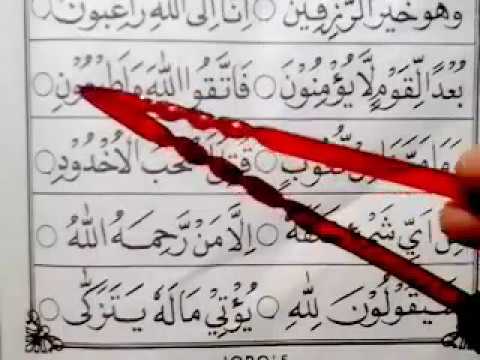 وَهُوَ خَيْرُ الرّٰزِقِيْنَ اِنَّا اِلَى اللّٰهِ رَاغِبُوْنَ
بُعْدًا لِّقَوْمٍ لَّا يُؤْمِنُوْنَ ○ فَاتَّقُوا اللّٰهَ وَاَطِيْعُوْنِ ○
لُّغُوْبٍ ○ قُتِلَ اَصْحٰبُ الْاُخْدُوْدِ ○
مِنْ اَيِّ شَيْءٍ خَلَقَهٗ ○ اِلَّا مَنْ رَّحِمَهُ اللّٰهُ ○
سَيَقُوْلُوْنَ لِلّٰهِ ○ يُؤْتِيْ مَالَهٗ يَتَزَكّٰى ○